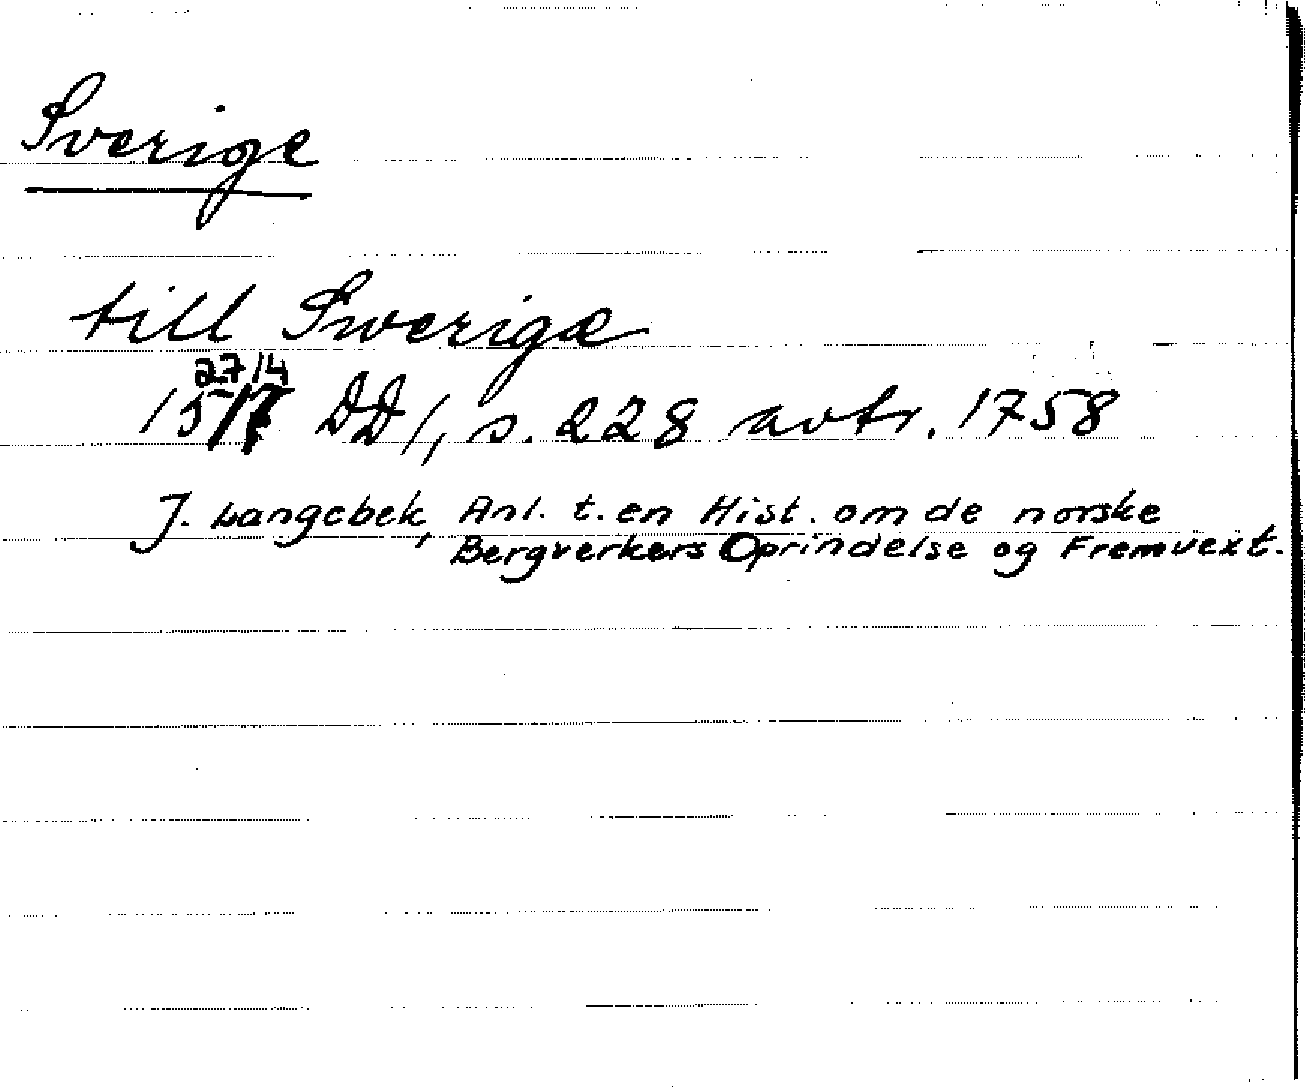 Sverige
till Swerigæ
27/4
1517 DD1, s. 228 avtr. 1758
J. Langebek, Anl. t. en Hist. om de norske
Bergverkers Oprindelse og Fremvext.